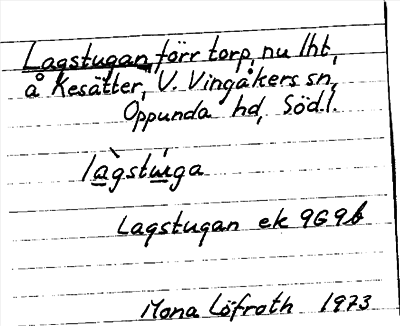 Lagstugan, förr torp, nu lht,
å Kesätter, V. Vingåkers sn,
Oppunda hd, Södl.
làgstúga
Lagstugan ek 9G9b
Mona Löfroth 1973